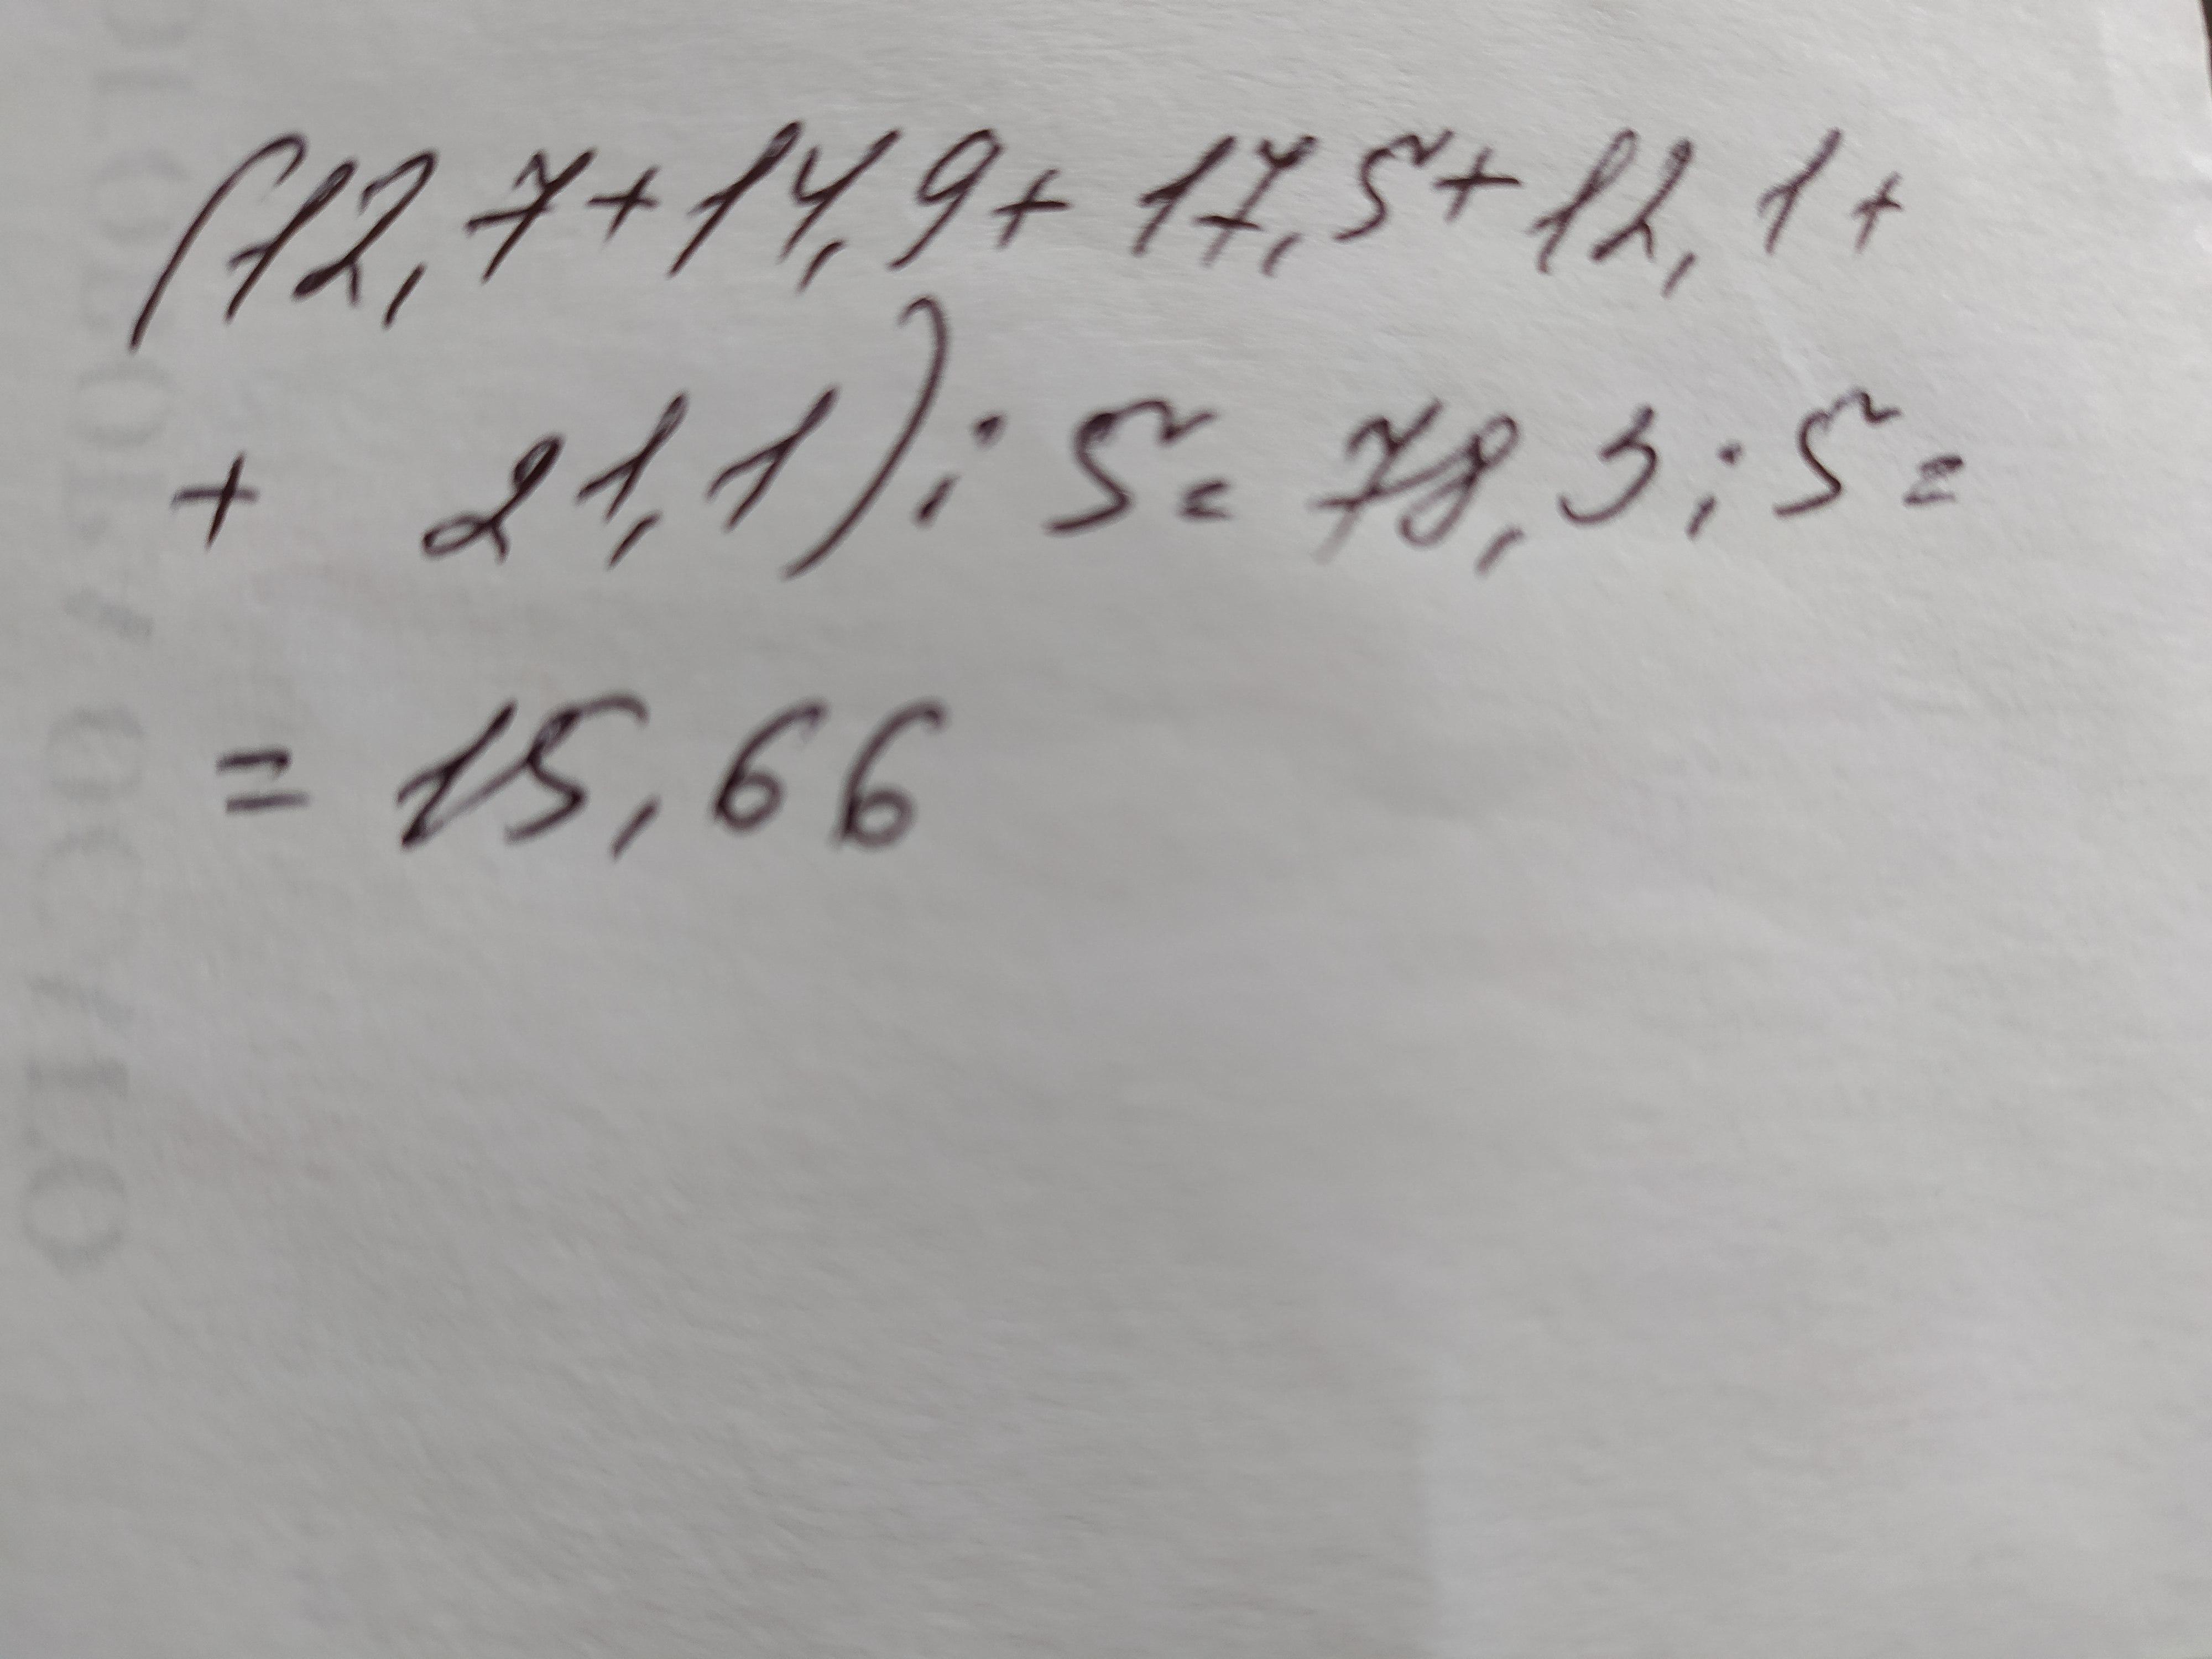 (12,7+14,9+17,5+12,1+
+ 21,1):5=78,3:5=
=15,66